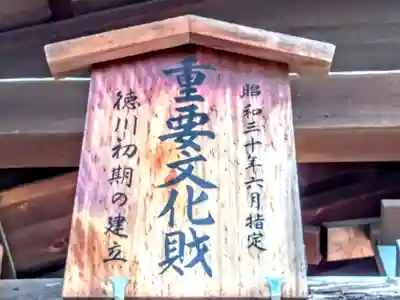 昭和三十年六月指定
重要文化財
徳川初期の建立